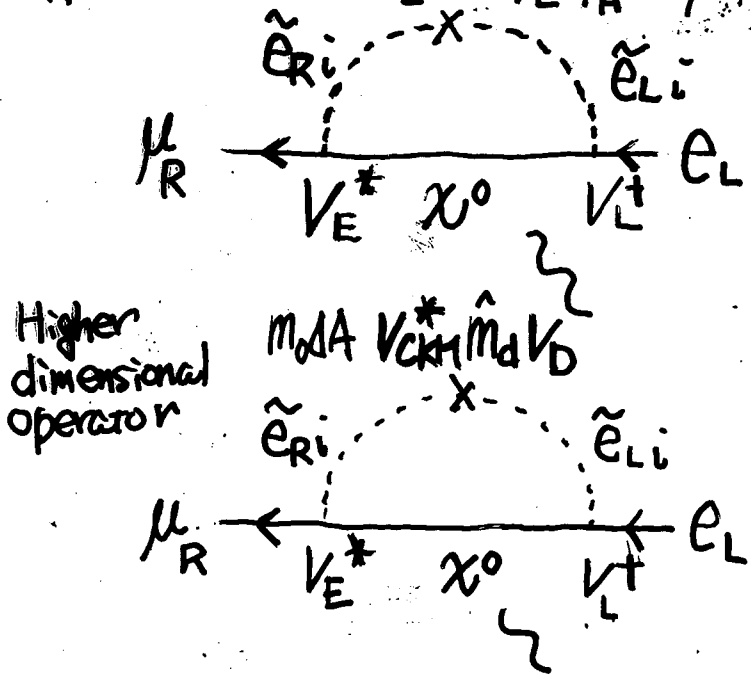 ẽ_Ri ẽ_Li
μ_R e_L
V_E^* χ⁰ V_L^†
Higher
dimensional
operator
m₀ΔA V_CKM^* m̂_d V_D
ẽ_Ri ẽ_Li
μ_R e_L
V_E^* χ⁰ V_L^†